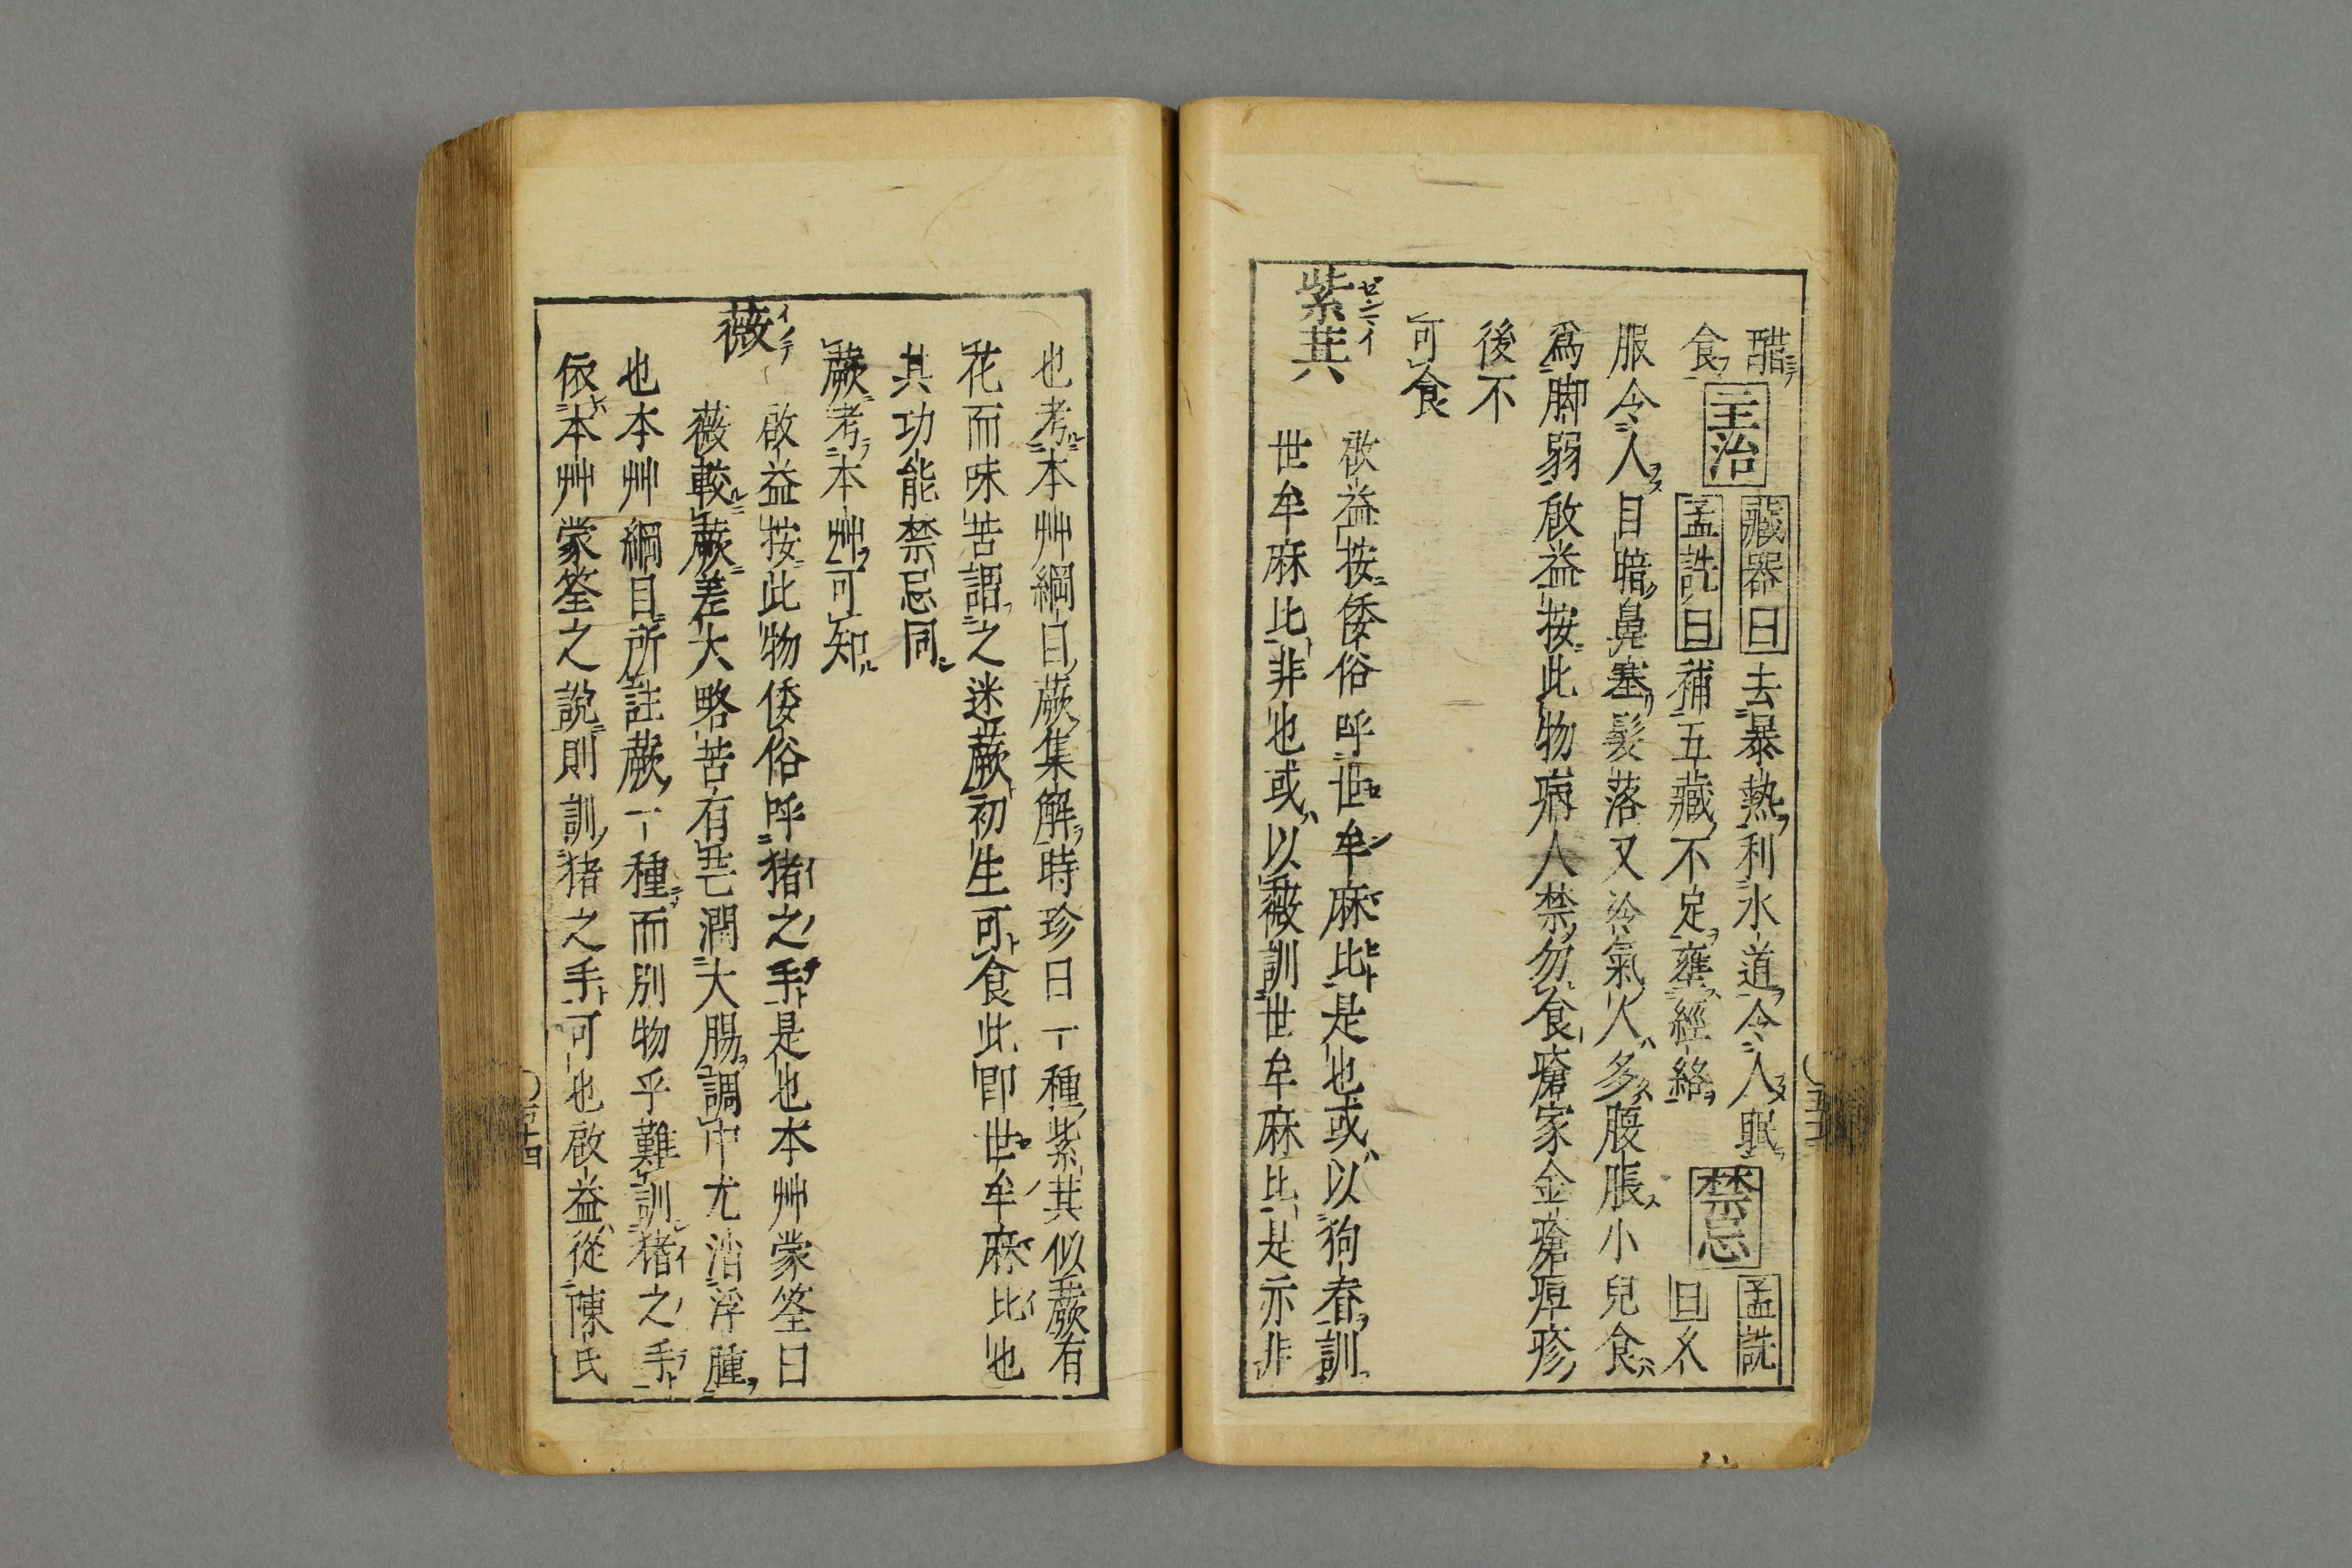 醋食主治藏器曰去暴熱利水道令人眠禁忌孟詵
孟詵曰補五藏不足壅經絡曰久
服令人目暗鼻塞髮落又冷氣人多腹脹小兒食
爲脚弱啟益按此物病人禁勿食瘡家金瘡痘疹
後不
可食
紫萁ゼンマイ
啟益按倭俗呼世牟麻比是也或以狗脊訓
世牟麻比非也或以薇訓世牟麻比是亦非
也考本艸綱目蕨集解時珍曰一種紫萁似蕨有
花而味苦謂之迷蕨初生可食此即世牟麻比也
其功能禁忌同
蕨考本艸可知
薇イノテ
啟益按此物倭俗呼猪之手是也本艸蒙筌曰
薇較蕨差大略苦有芒潤大腸調中尤治浮腫
也本艸綱目所註蕨一種而別物乎難訓猪之手
依本艸蒙筌之說則訓猪之手可也啟益從陳氏